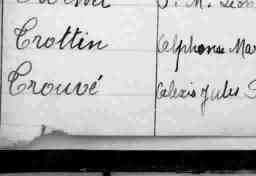 Trottin Alphonse Mar
Trouvé Alexis Jules